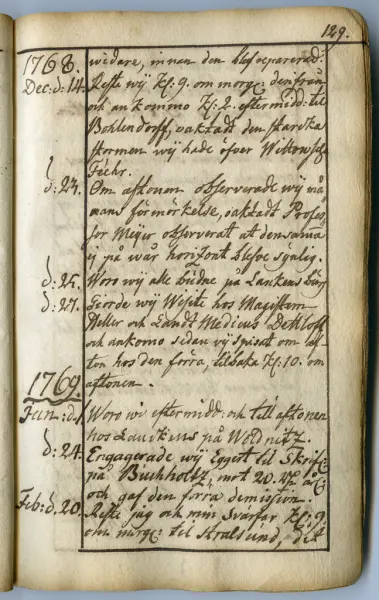 129.
1768. widare, innan den blef separerad:
Dec: d: 14. Reste wij Kl: 9. om morg: denfrån
och ankommo Kl: 2. eftermidd: til
Bohlendorff, oaktadt den starcka
stormen wij hade öfver Wittowsche
Fehr.
d: 23. Om aftonen observerade wij må-
nans förmörkelse, oaktadt Profes-
sor Meyer observerat at den samma
ej på wår horizont blefve synlig.
d: 25. Woro wij alle budne på Lankensburg
d: 27. Giorde wij Visite hos Magistern
Heller och Landt Medicus Dethloff
och ankomo sedan wij spisat om af-
ton hos den förra, tilbaka Kl: 10. om
aftonen.
1769.
Jan: d. Woro wi eftermidd: och till aftonen
hos Lauckens på Woldnitz.
d: 24. Engagerade wij Eggert til Skrif:
på Buchholtz, mot 20. om år:
och gaf den förra demission.
Feb: d. 20. Reste jag och min Svärfar Kl: 9.
om morg: til Stralsund, dit